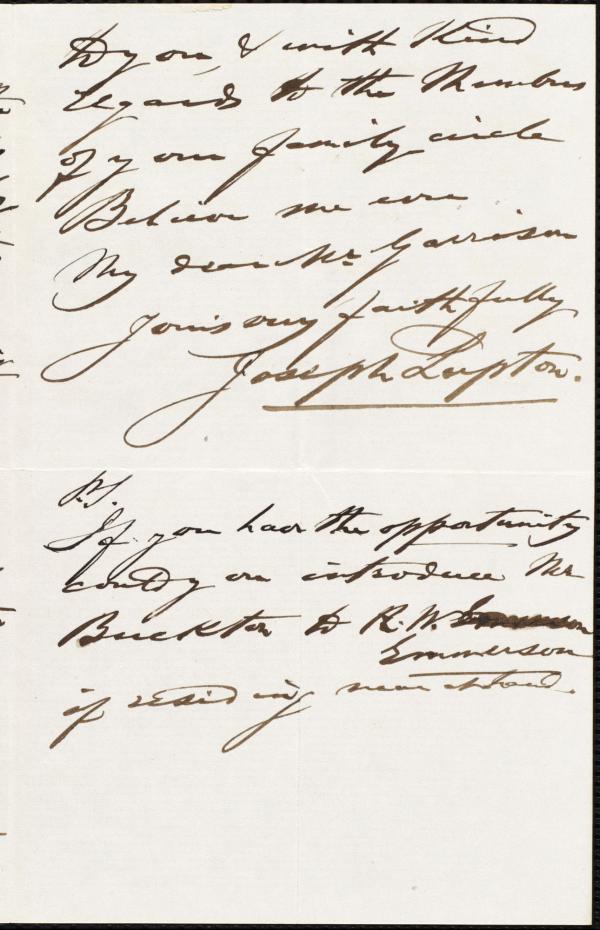 to you, & with Kind
regards to the Members
of your family circle
Believe me ever
My dear Mr Garrison
Yours very faithfully
Joseph Lupton.
P.S.
If you have the opportunity
could you introduce Mr
Buckton to R. W. Emmerson
Emmerson
if residing near at hand.